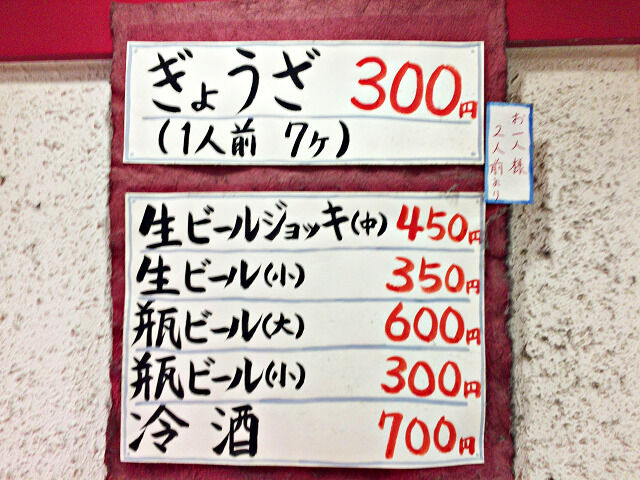 ぎょうざ 300円
(1人前 7ヶ)
お一人様
2人前より
生ビールジョッキ(中) 450円
生ビール(小) 350円
瓶ビール(大) 600円
瓶ビール(小) 300円
冷酒 700円